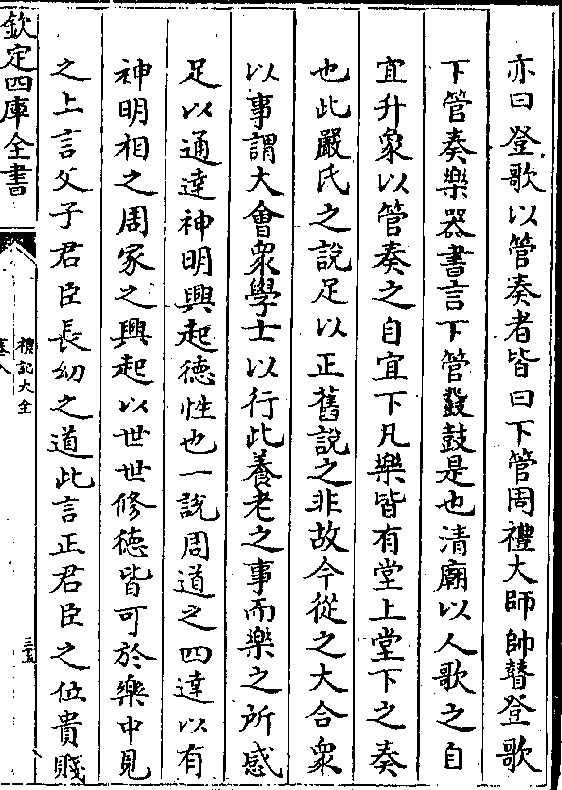 亦曰登歌以管奏者皆曰下管周禮大師帥瞽登歌
下管奏樂器書言下管鼗鼓是也清廟以人歌之自
宜升象以管奏之自宜下凡樂皆有堂上堂下之奏
也此嚴氏之說足以正舊說之非故今從之大合衆
以事謂大會衆學士以行此養老之事而樂之所感
足以通達神明興起德性也一說周道之四達以有
神明相之周家之興起以世世修德皆可於樂中見
之上言父子君臣長幼之道此言正君臣之位貴賤
欽定四庫全書
禮記大全
卷八
三五